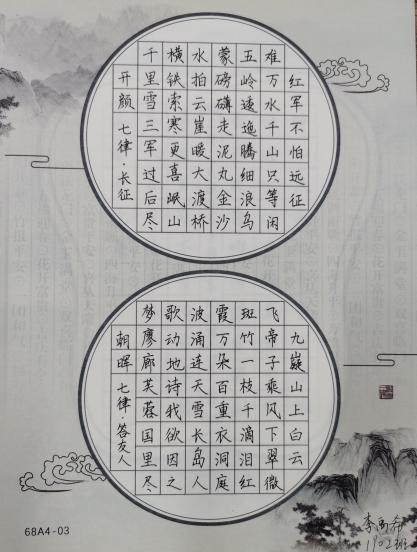 红军不怕远征
难万水千山只等闲
五岭逶迤腾细浪乌
蒙磅礴走泥丸金沙
水拍云崖暖大渡桥
横铁索寒更喜岷山
千里雪三军过后尽
开颜 七律·长征
九嶷山上白云
飞帝子乘风下翠微
斑竹一枝千滴泪红
霞万朵百重衣洞庭
波涌连天雪长岛人
歌动地诗我欲因之
梦廖廓芙蓉国里尽
朝晖 七律·答友人
68A4-03
1902班